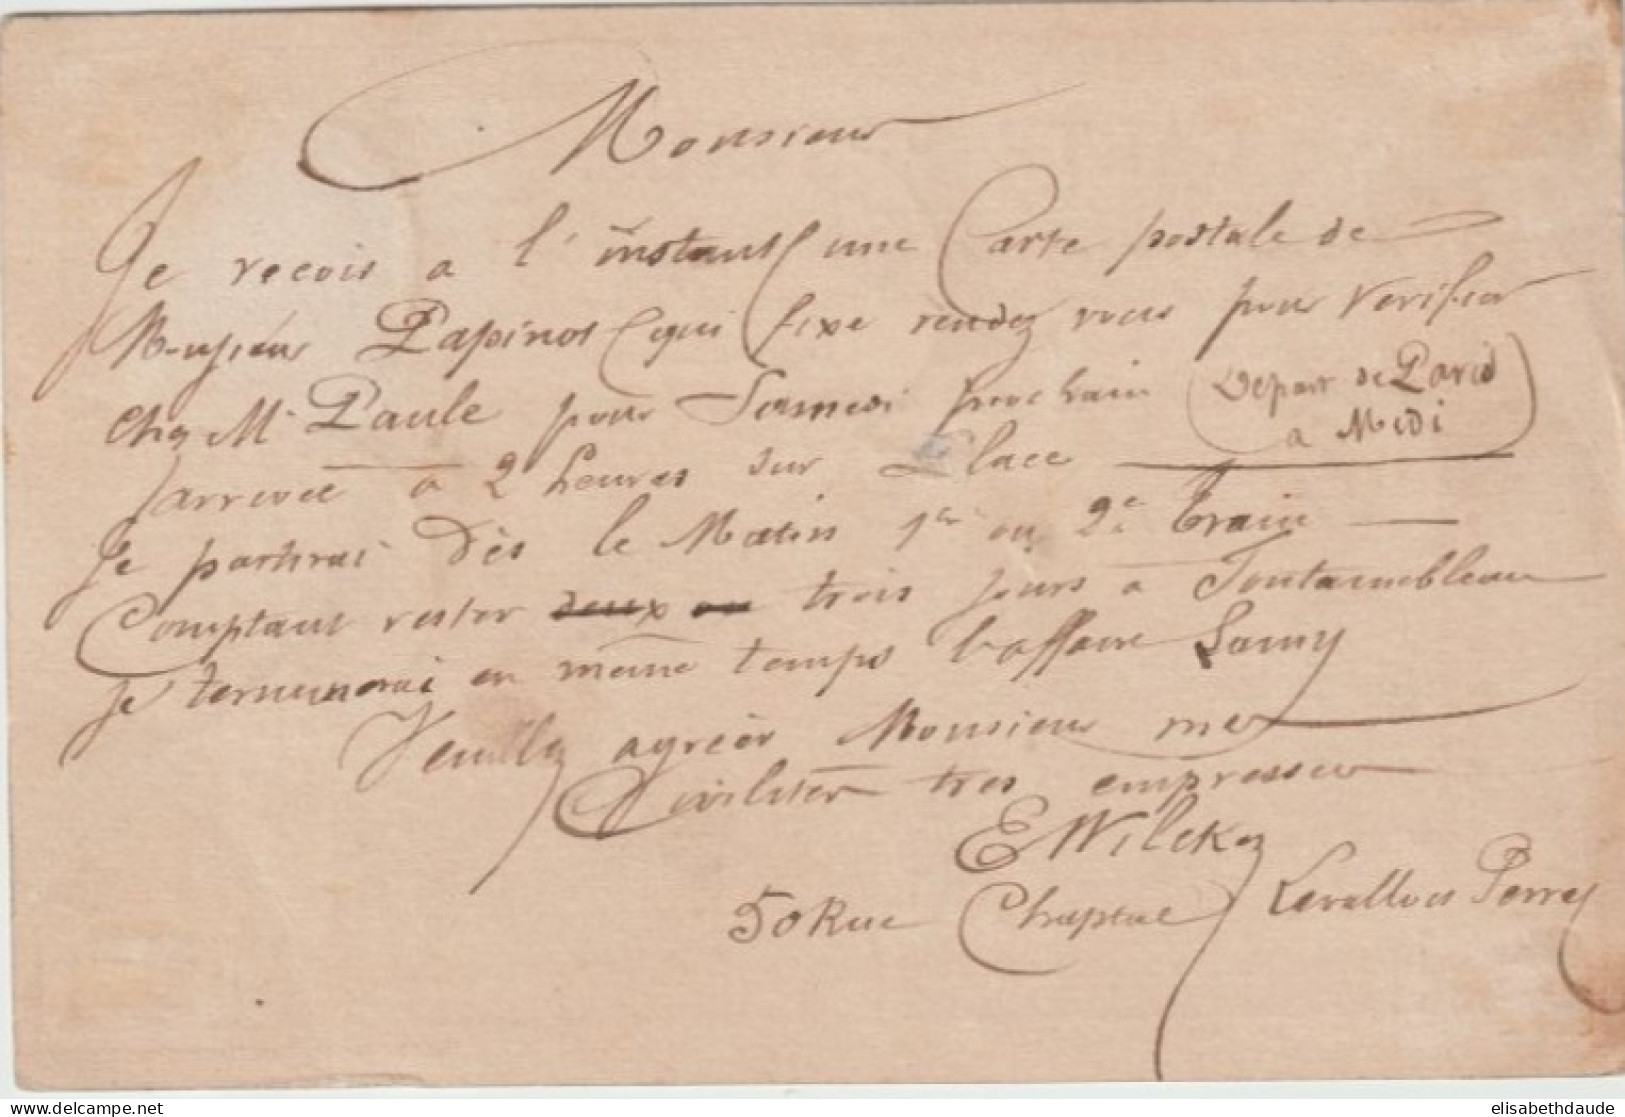 Monsieur
Je reçois a l'instant une Carte postale de
Monsieur Papinot qui fixe rendez vous pour Verifier
Chez Mr Paule pour Samedi prochain (Depart de Paris
a Midi)
arrivée a 2 heures sur Place
Je partirai Dès le Matin 1er ou 2e Train
Comptant rester deux ou trois jours a Fontainebleau
je terminerai en même temps l'affaire Lamy
Veuillez agréer Monsieur mes
Civilités tres empressées
E Wilckez
50 Rue Chaptal Levallois Perret
elisabethdaude